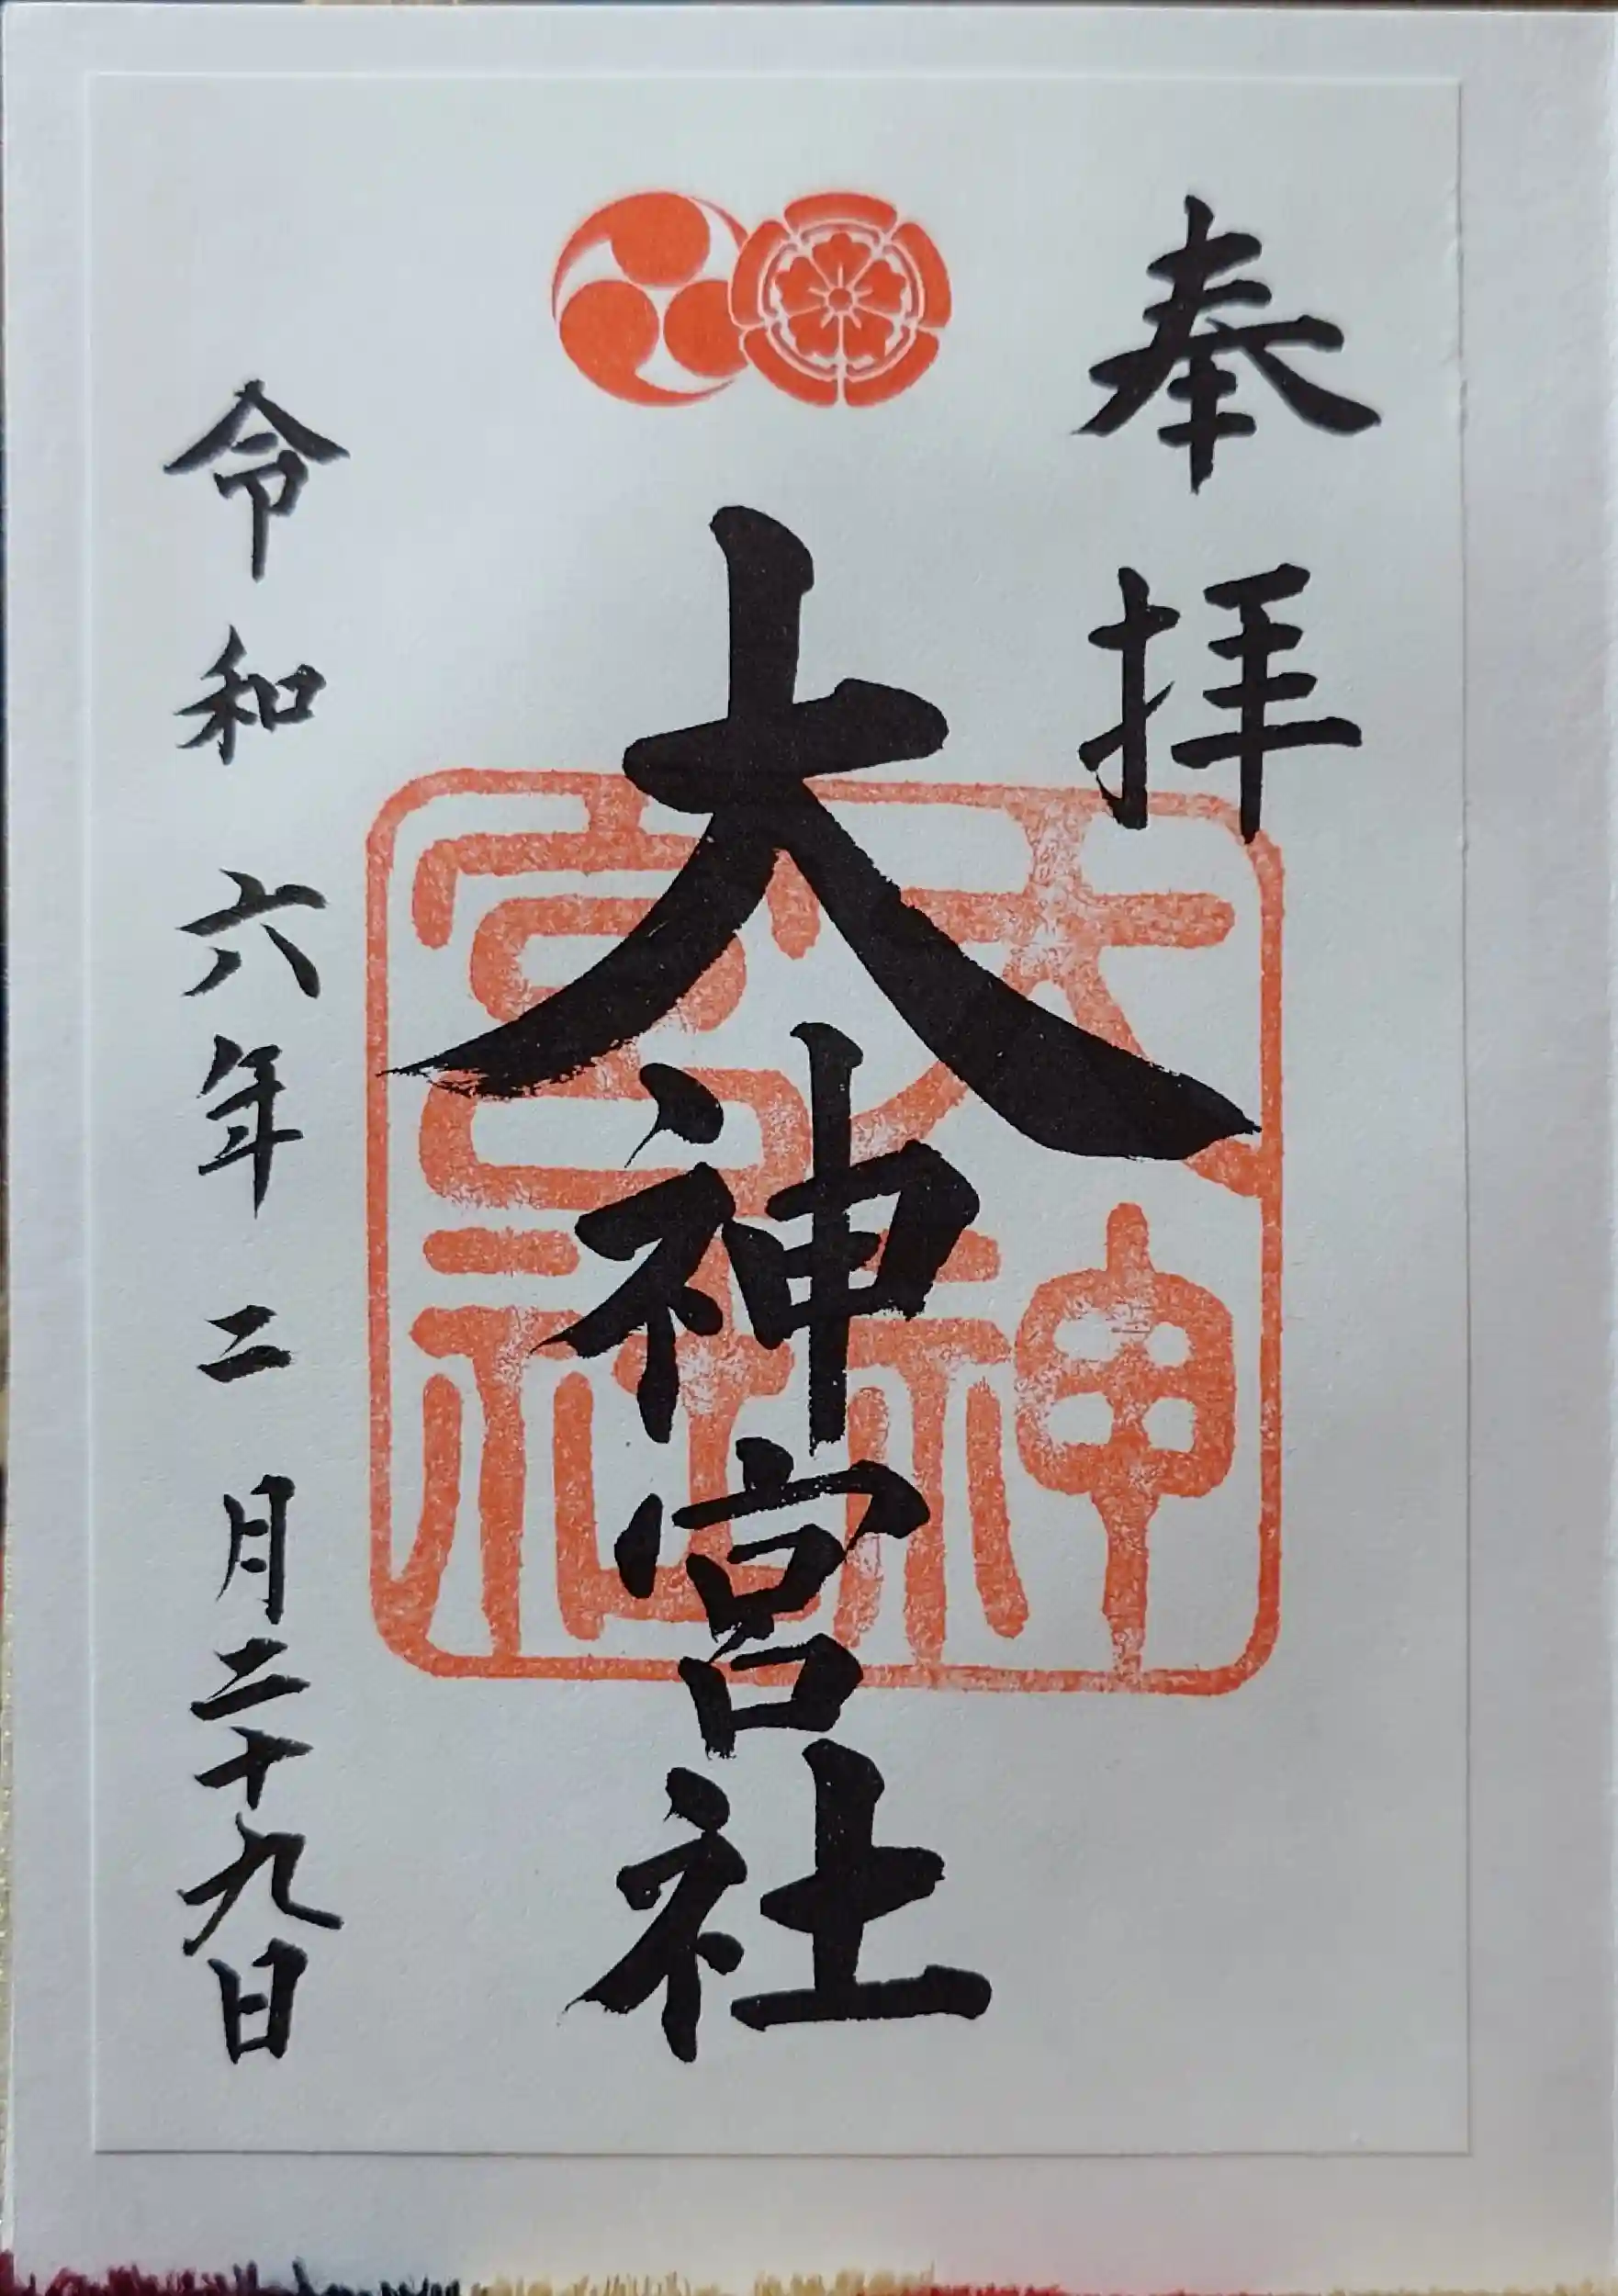 奉拝
大神宮社
大神宮社
令和六年二月二十九日